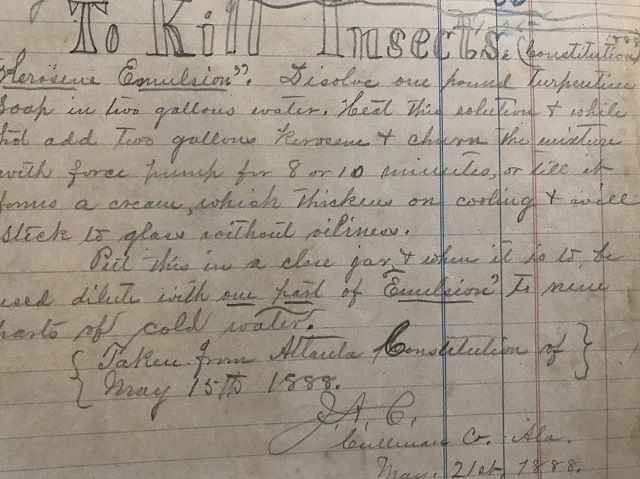 To Kill Insects. (Constitution 1888
"Kerosene Emulsion". Disolve one pound Turpentine
Soap in two gallons water. Heat this solution & while
hot add Two gallons Kerosene & churn the mixture
with force pump for 8 or 10 minutes, or till it
forms a cream, which thickens on cooling & will
stick to glass without oiliness.
Put this in a close jar & when it is to be
used dilute with one part of "Emulsion" to nine
parts of cold water.
{ Taken from Atlanta Constitution of }
{ May 15th 1888. }
J. A. C.
Cullman Co. Ala.
May. 21st, 1888.